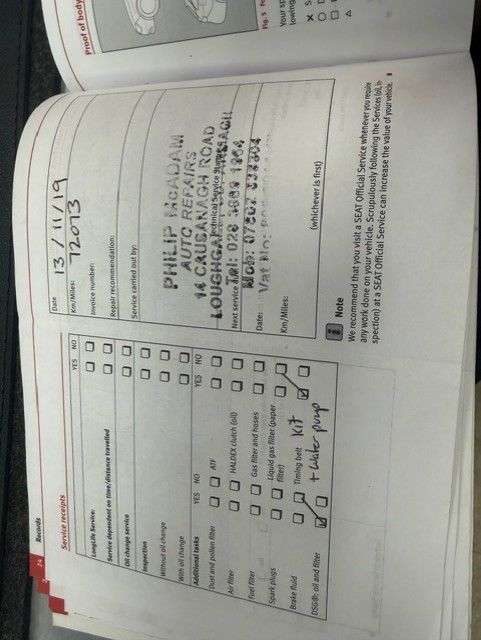 24
Records
Service receipts
YES NO
LongLife Service:
Service dependent on time/distance travelled
Oil change service
Inspection
Without oil change
With oil change
Additional tasks YES NO YES NO
Dust and pollen filter ATF
Air filter HALDEX clutch (oil)
Fuel filter Gas filter and hoses
Spark plugs Liquid gas filter (paper filter)
Brake fluid Timing belt KIT
DSG®: oil and filter + Water pump
Date 13/11/19
Km/Miles: 72073
Invoice number:
Repair recommendation:
Service carried out by:
PHILIP McADAM
AUTO REPAIRS
14 CRUBANAGH ROAD
LOUGHGALL
Tel: 028 3889 1364
Next service
Mob: 07802
Date: Vat No:
Km/Miles:
(whichever is first)
i Note
We recommend that you visit a SEAT Official Service whenever you require
any work done on your vehicle. Scrupulously following the Services (oil, in-
spection) at a SEAT Official Service can increase the value of your vehicle.
Proof of body
Fig. 5
Your sp
lowing